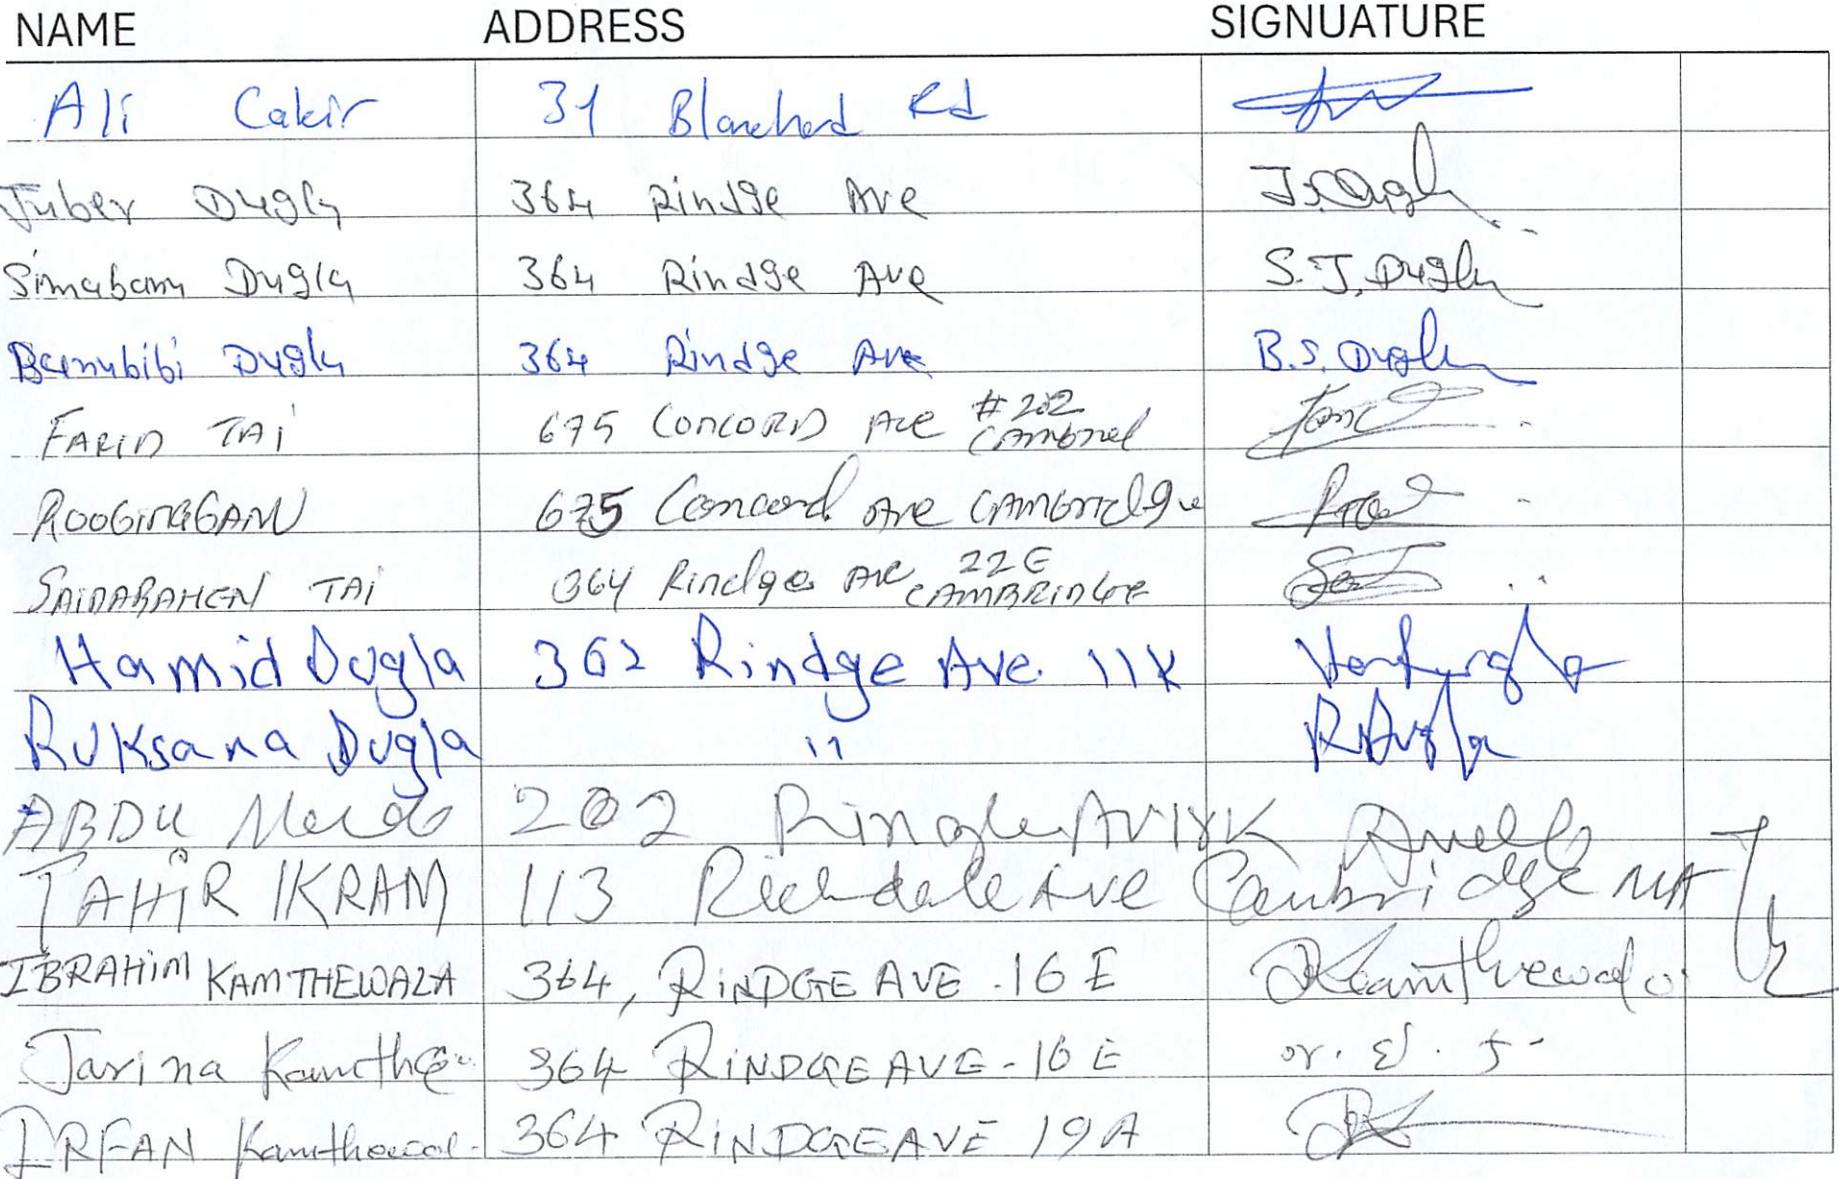 NAME ADDRESS SIGNUATURE
Ali Cakir 31 Blanchard Rd
Juber Dugly 364 Rindge Ave J.S.Dugly
Simabam Dugly 364 Rindge Ave S.J.Dugly
Banubibi Dugly 364 Rindge Ave B.S.Dugly
FARID TAi 675 CONCORD Ave #202
675 Concord Ave CAMBridge
SAIDARAHEN TAi 364 Rindge Ave 22E
CAMBRIDGE
Hamid Dugla 362 Rindge Ave. 11K
Ruksana Dugla " R Dugla
ABDU 202
TAHiR IKRAM 113 Richdale Ave Cambridge MA
IBRAHiM KAMTHEWALA 364, RiNDGE AVE .16 E Kamthewala
Jarina Kamthe 364 RiNDGE AVE-16 E
IRFAN Kamthewal- 364 RiNDGE AVE 19A